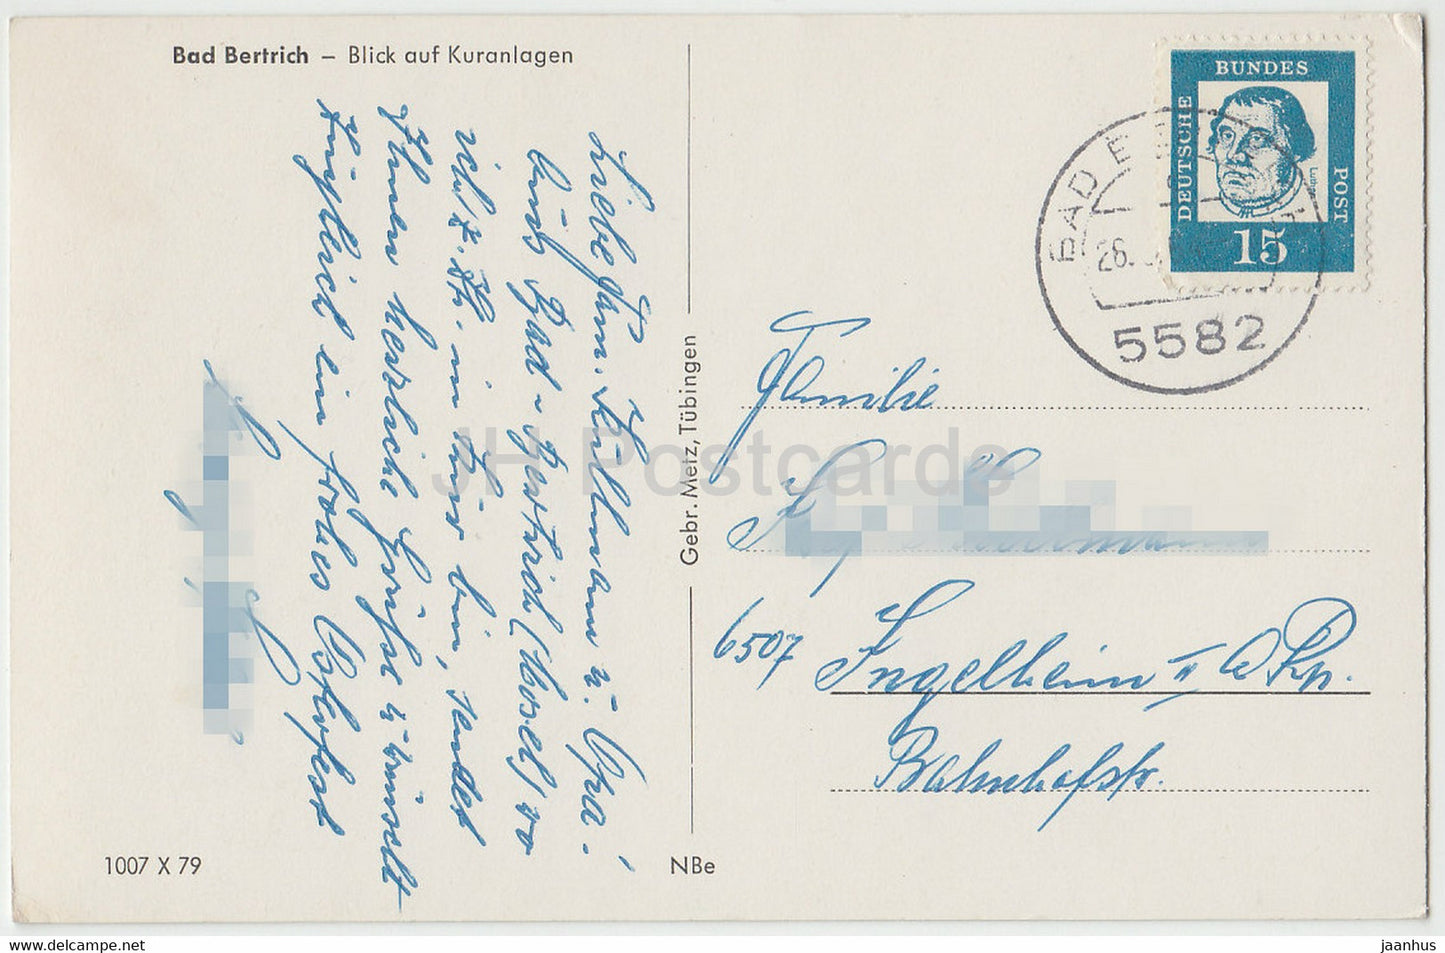 Bad Bertrich – Blick auf Kuranlagen
Liebe Fam. u. Opa!
Aus Bad-Bertrich (Mosel) wo
ich z. Zt. in Kur bin, sendet
Ihnen herzliche Grüße u. wünscht
zugleich ein frohes Osterfest
Gebr. Metz, Tübingen
1007 X 79
NBe
DEUTSCHE
BUNDES
POST
Luther
15
BAD
26.
5582
Familie
6507 Ingelheim a Rh.
Bahnhofstr.
JH Postcards
www.delcampe.net
jaanhus